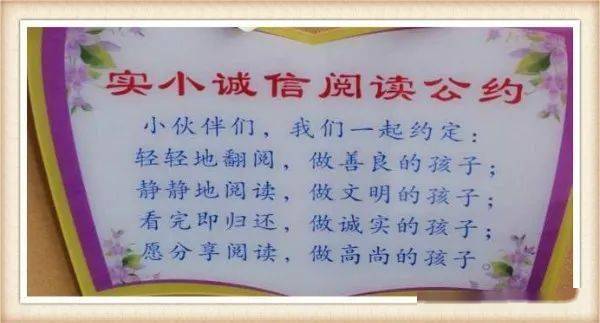 实小诚信阅读公约
小伙伴们，我们一起约定：
轻轻地翻阅，做善良的孩子；
静静地阅读，做文明的孩子；
看完即归还，做诚实的孩子；
愿分享阅读，做高尚的孩子